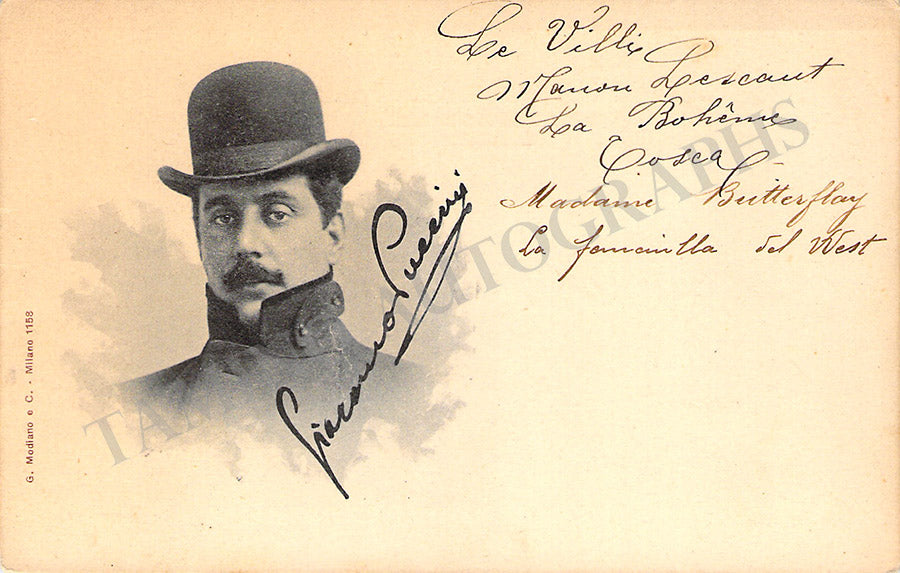 Le Villi
Manon Lescaut
La Bohême
Tosca
Madame Butterflay
La fanciulla del West
Giacomo Puccini
G. Modiano e C. - Milano 1158
TAMINO AUTOGRAPHS